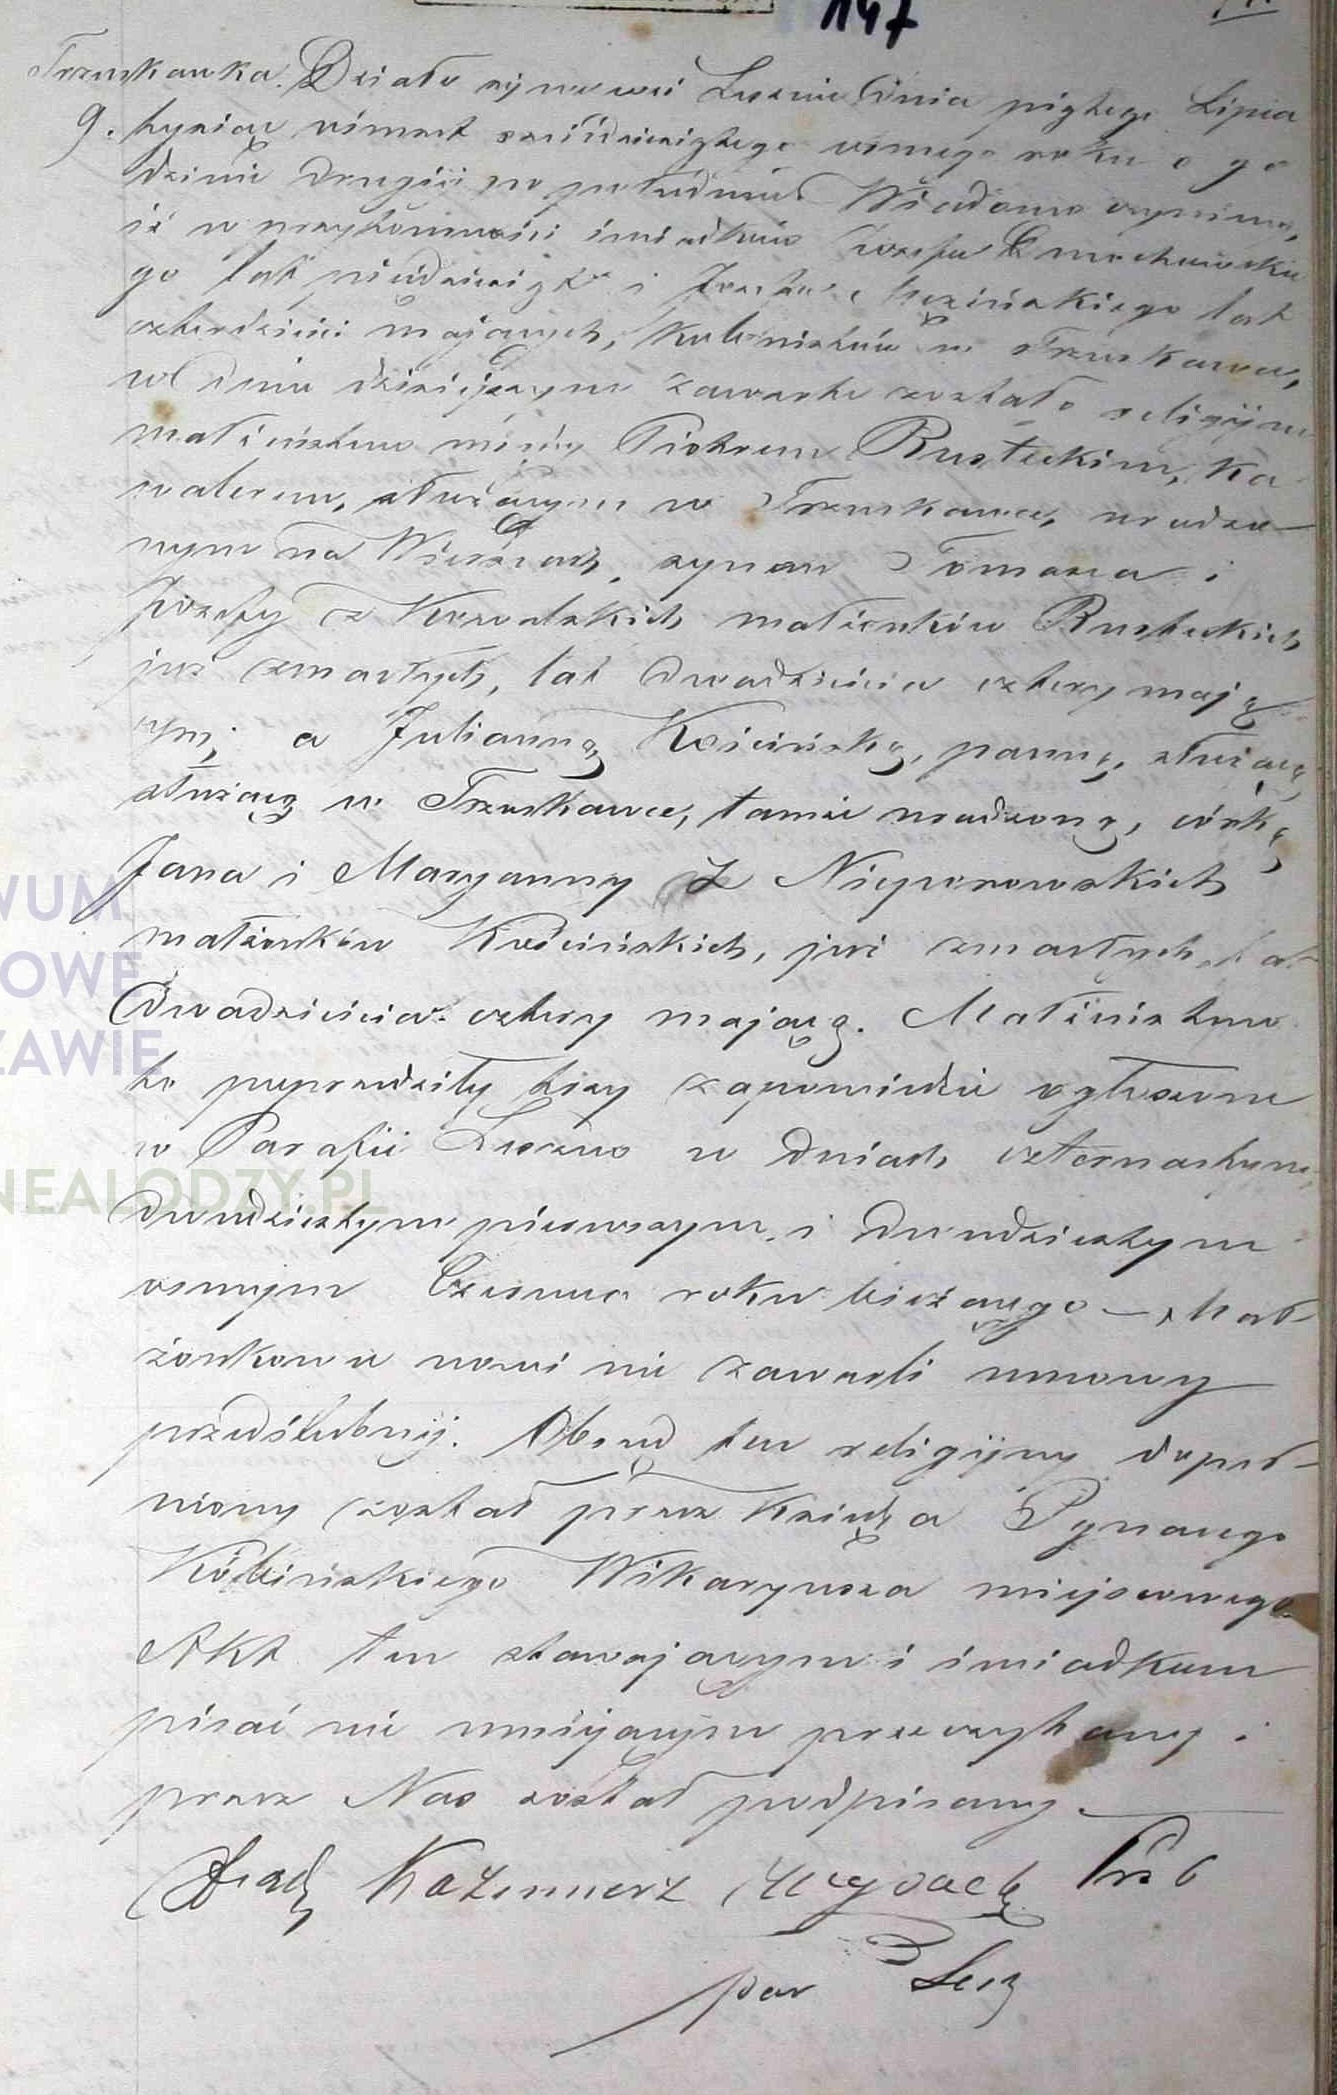 147
Truskawka. Działo się we wsi Lesznie dnia piątego Lipca
9. tysiąc ośmset sześćdziesiątego ósmego roku o go
dzinie drugiéj po południu Wiadomo czyniemy,
iż w przytomności świadków Józefa Gmochowskie
go lat pięćdziesiąt i Józefa Męcińskiego lat
czterdzieści mających, kolonistów w Truskawce,
w dniu dzisiejszym zawarte zostało religijne
małżeństwo między Piotrem Rusteckim, ka
walerem, służącym w Truskawce, urodzo
nym na Wierszach, synem Tomasza i
Józefy z Kowalskich małżonków Rusteckich
już zmarłych, lat dwadzieścia cztery mają
cym; a Julianną Kościńską, panną, służącą
służącą w Truskawce, tamże urodzoną, córką
Jana i Maryanny z Nieporowskich
małżonków Kościńskich, już zmarłych, lat
dwadzieścia cztery mającą. Małżeństwo
to poprzedziły trzy zapowiedzie ogłoszone
w Parafii Leszno w dniach czternastym,
dwudziestym pierwszym, i dwudziestym
ósmym Czerwca roku bieżącego — Mał
żonkowie nowi nie zawarli umowy
przedślubnéj. Obrzęd ten religijny dopeł
niony został przez Księdza Ignacego
Wikaryusza miejscowego.
Akt ten stawającym i świadkom
pisać nie umiejącym przeczytany i
przez Nas został podpisany.
Kazimierz Prob
par Lesz
WUM
OWE
ZAWIE
NEALODZY.PL